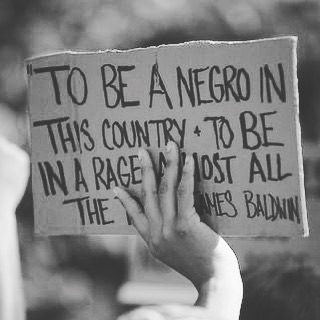 "TO BE A NEGRO IN
THIS COUNTRY + TO BE
IN A RAGE ALL
THE JAMES BALDWIN